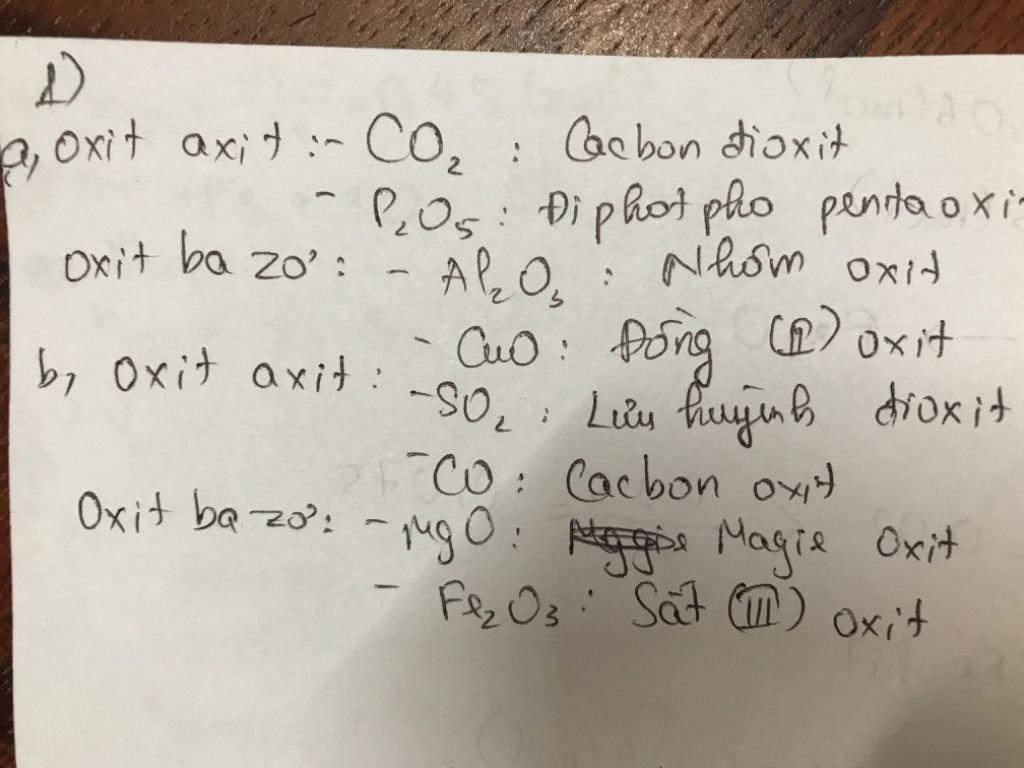 1)
a, oxit axit :- CO₂ : Cacbon đioxit
- P₂O₅ : Điphotpho pentaoxi
oxit ba zơ : - Al₂O₃ : Nhôm oxit
- CuO : Đồng (II) oxit
b, oxit axit :
- SO₂ : Lưu huỳnh đioxit
- CO : Cacbon oxit
Oxit ba zơ : - MgO : Magie Oxit
- Fe₂O₃ : Sắt (III) oxit